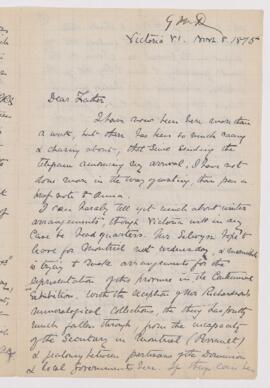 G M D
Victoria V.I. Nov. 8. 1875
Dear Father,
I have now been here more than
a week, but there has been so much racing
& chasing about, that since sending the
telegram announcing my arrival, I have not
done more in the way of writing, than pen a
brief note to Anna.
I can hardly tell yet much about winter
arrangements though Victoria will in any
case be headquarters. Mr Selwyn hopes to
leave for Montreal next Wednesday, & meanwhile
is trying to make arrangements for the
representation of the province in the Centennial
Exhibition. With the exception of Mr Richardson's
mineralogical collections, the they has pretty
much fallen through, from the incapacity
of the Secretary in Montreal (Perrault)
& jealousy between partisans of the Dominion
& local Governments here. If they can be